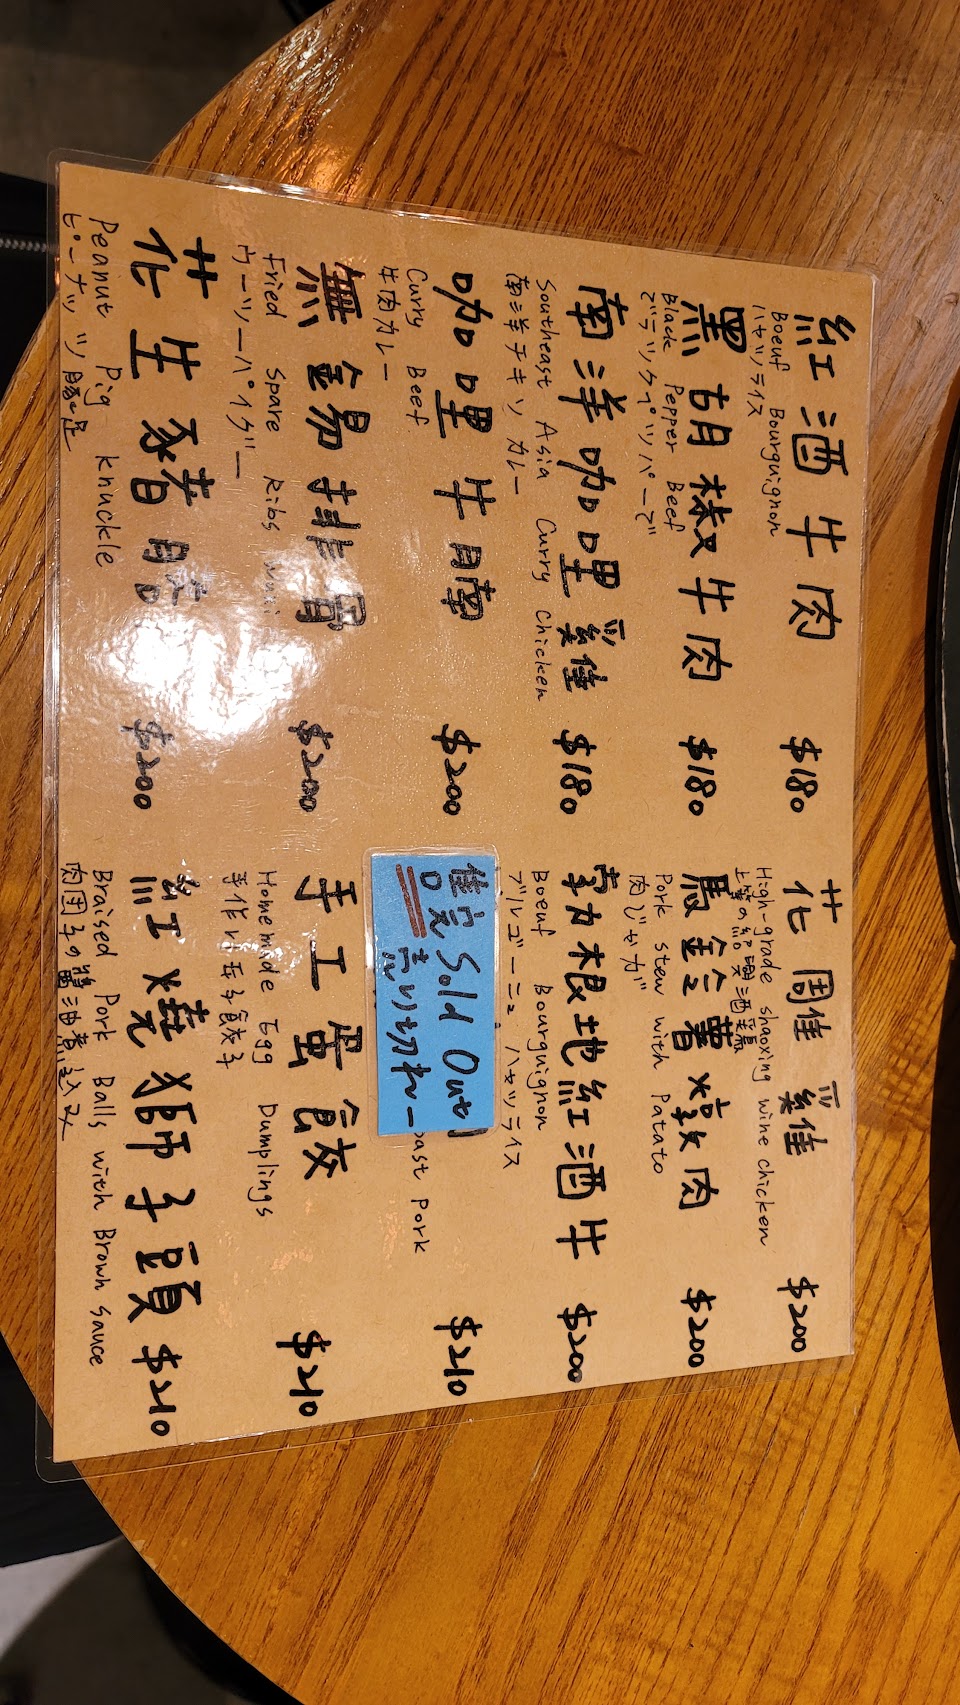 紅酒牛肉 $180
Boeuf Bourguignon
ハヤッツライス
黑胡椒牛肉 $180
Black Pepper Beef
南洋咖哩雞 $180
Southeast Asia Curry Chicken
南洋チキンカレー
咖哩牛腩 $200
Curry Beef
牛肉カレー
無錫排骨 $200
Fried Spare Ribs wuxi
ウーツーパイグー
花生豬腳 $200
Peanut Pig knuckle
ピーナッツ豚足
花雕雞 $200
High-grade shaoxing wine chicken
馬鈴薯燉肉 $200
Pork stew with Patato
肉じゃが
勃根地紅酒牛 $200
Boeuf Bourguignon
ブルゴーニュ ハヤッツライス
售完 Sold Out
売り切れー
oast Pork $210
手工蛋餃 $210
Homemade Egg Dumplings
手作り玉子餃子
紅燒獅子頭 $210
Braised Pork Balls with Brown sauce